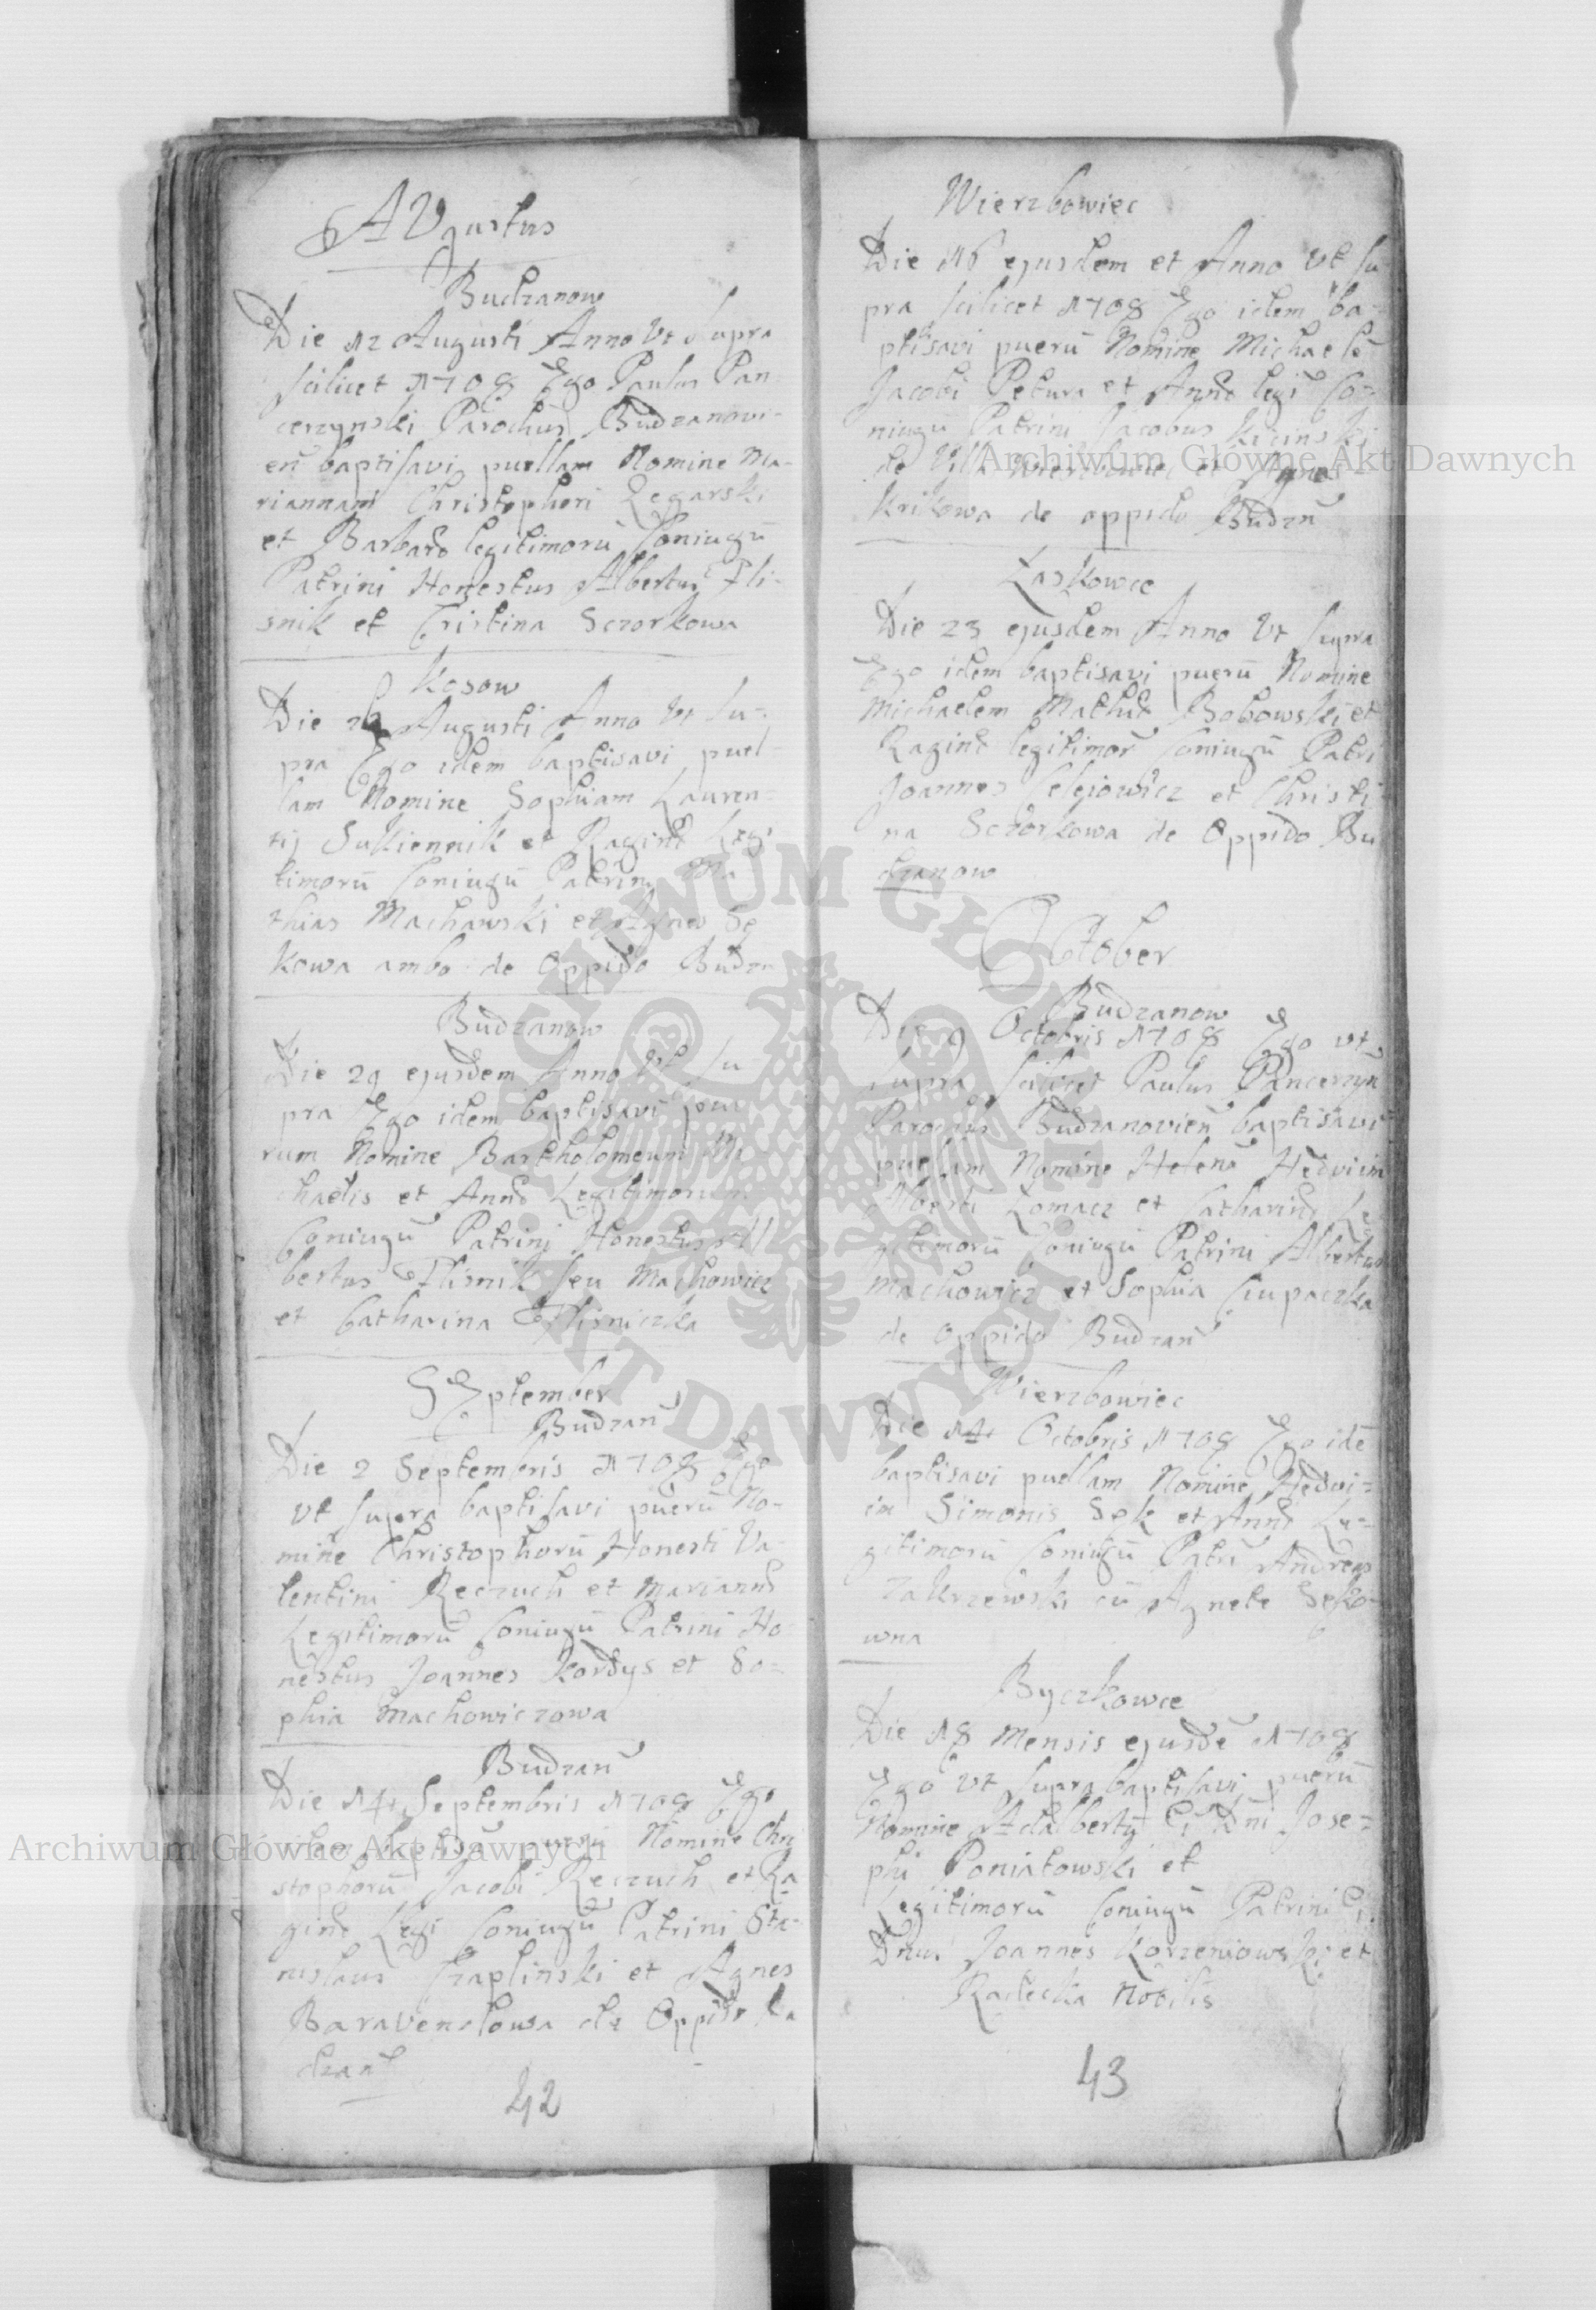 AVgustus
Budzanow
Die 12 Augusti Anno Vt supra
scilicet 1708 Ego Paulus Pan-
cerzynski Parochus Budzanovi-
en baptisavi puellam Nomine Ma-
riannam Christopheri Legarski
et Barbarae legitimorū Coniugū
Patrini Honestus Albertus Fli-
snik et Cristina Sczorkowa
Kosow
Die Augusti Anno Vt su-
pra Ego idem baptisavi puel-
lam Nomine Sophiam Lauren-
tij Sukiennik et Raginae Legi
timorū Coniugū Patrini Ma
thias Machowski et Agnes Sę
kowa ambo de Oppido Budza
Budzanow
Die 29 ejusdem Anno Vt su
pra Ego idem baptisavi pue
rum Nomine Bartholomeum Mi
chaelis et Annae Legitimorum
Coniugū Patrini Honestus Al
bertus Flisnik seu Machowicz
et Catharina Flisniczka
SEptember
Budzan
Die 2 Septembris 1708 Ego
vt supra baptisavi puerū No-
mine Christophorū Honesti Va-
lentini Reczuch et Mariannae
Legitimorū Coniugū Patrini Ho-
nestus Joannes Kordys et So-
phia Machowiczowa
Budzan
Die 14 Septembris 1708 Ego
idem puerū Nomine Chri
stophorū Jacobi Reczuch et Ra
ginae Legi Coniugū Patrini Sta-
nislaus Czaplinski et Agnes
de Oppido Bu
dzan
42
Wierzbowiec
Die 16 ejusdem et Anno Vt su-
pra scilicet 1708 Ego idem ba-
ptisavi puerū Nomine Michaelē
Jacobi Petura et Annae legi Co-
niugū Patrini Jacobus Kicinski
de Villa Wierzbowiec et Agnes
Krikowa de oppido Budzn
Laskowce
Die 23 ejusdem Anno Vt supra
Ego idem baptisavi puerū Nomine
Michaelem Mathiae Bobowski et
Raginae legitimor Coniugū Patri
Joannes Celejowicz et Christi
na Sczorkowa de Oppido Bu
dzanow
October
Budzanow
Die 9 Octobris 1708 Ego vt
supra scilicet Paulus Pancerzyn
Parochus Budzanovien baptisavi
puellam Nomine Helenā Hedviim
Alberti Lomacz et Catharinae Le
gitimorū Coniugū Patrini Albertus
Machowicz et Sophia Ciupaczka
de Oppido Budzan
Wierzbowiec
Die 14 Octobris 1708 Ego idē
baptisavi puellam Nomine Hedvi-
im Simonis Sęk et Annae Le-
gitimorū Coniugū Patri Andreas
Zakrzewski cū Agnete Sęko-
wna
Byczkowce
Die 18 Mensis ejusdē 1708
Ego Vt supra baptisavi puerū
Nomine Adalbertū Gi Dni Jose-
phi Poniatowski et
Legitimorū Coniugū Patrini G
Dnus Joannes Korzeniowski et
Radecka Nobilis
43
Archiwum Główne Akt Dawnych
Archiwum Główne Akt Dawnych
ARCHIWUM GŁÓWNE AKT DAWNYCH